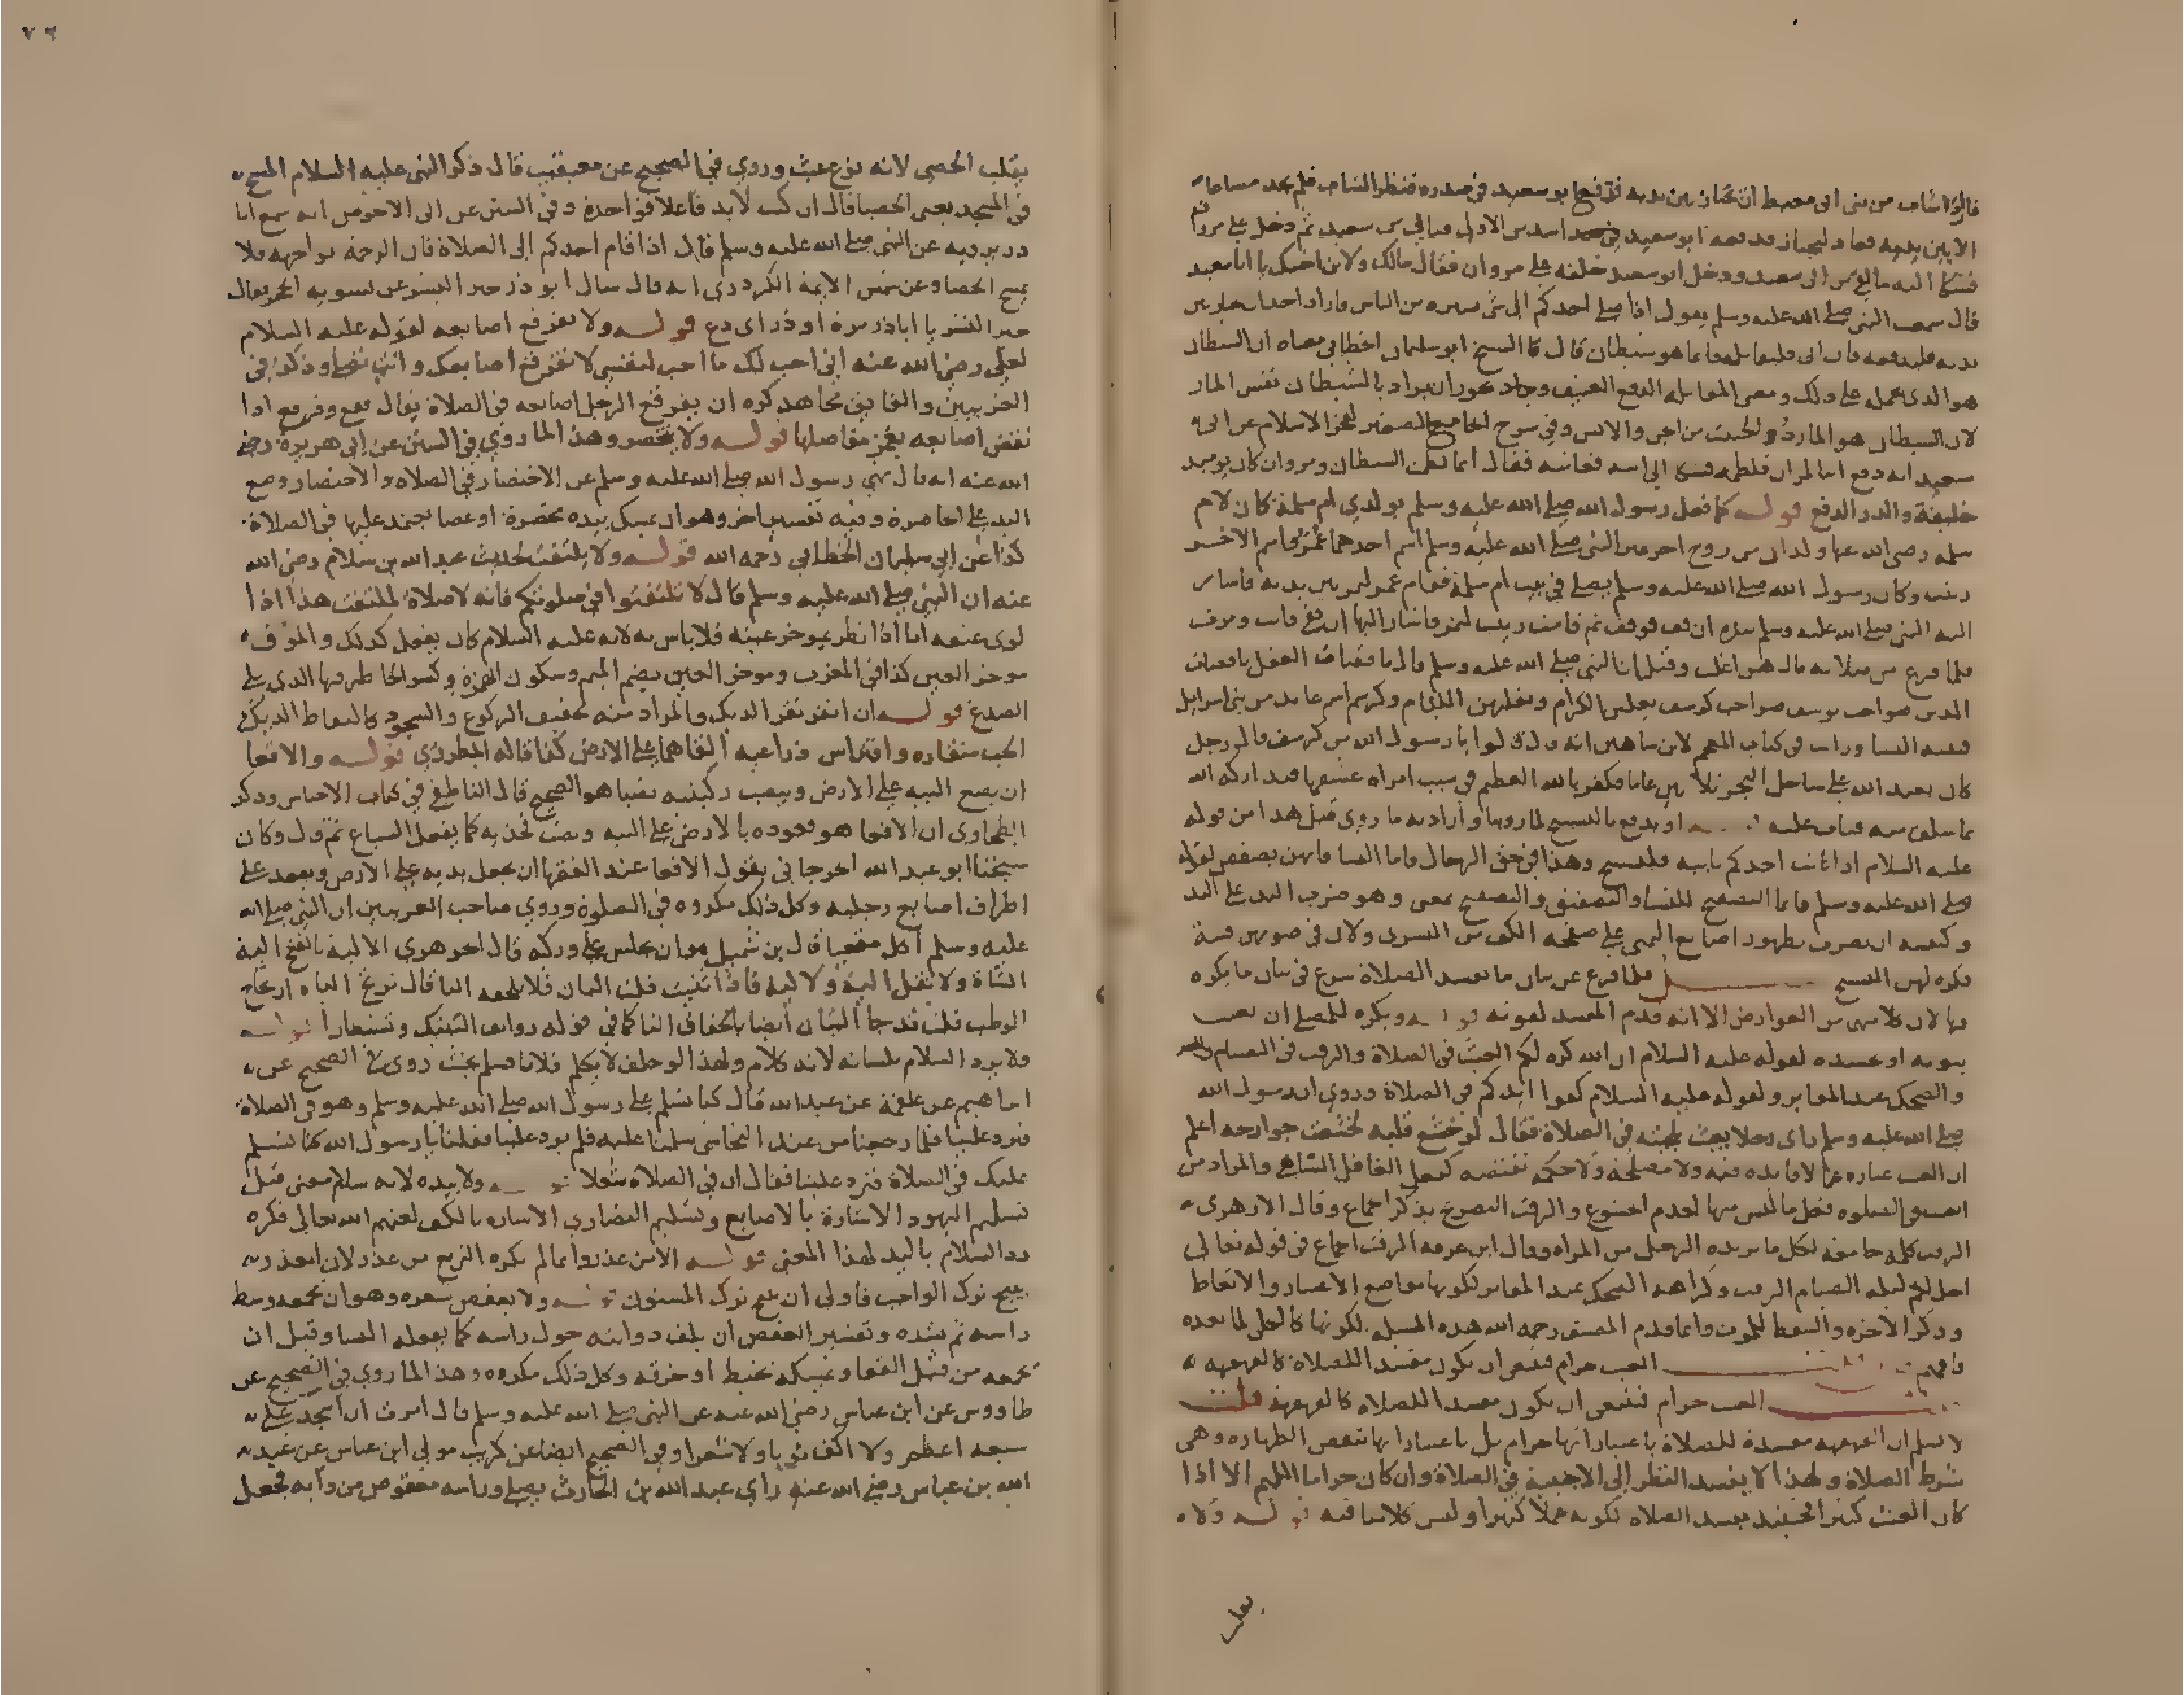 فاراد شاب من بنى ابى معيط ان يجتاز بين يديه فدفع ابو سعيد في صدره فنظر الشاب فلم يجد مساغا
الا بين يديه فعاد ليجتاز فدفعه ابو سعيد اشد من الاولى فنال من ابي سعيد ثم دخل على مروان
فشكا اليه ما لقي من ابي سعيد ودخل ابو سعيد خلفه على مروان فقال مالك ولابن اخيك يا ابا سعيد
قال سمعت النبي صلى الله عليه وسلم يقول اذا صلى احدكم الى شي يستره من الناس فاراد احد ان يجتاز بين
يديه فليدفعه فان ابى فليقاتله فانما هو شيطان قال الشيخ ابو سليمان الخطابي معناه ان الشيطان
هو الذى يحمله على ذلك ومعنى المقاتلة الدفع العنيف وجاز ان يراد بالشيطان نفس المار
لان الشيطان هو المارد الخبيث من الجن والانس وفي شرح الجامع الصغير لفخر الاسلام عن ابى
سعيد انه دفع ابنا لمروان فلطمه فشكا الى ابيه فعاتبه فقال انما لطمت الشيطان ومروان كان يوميد
خليفة والدرء الدفع قوله كما فعل رسول الله صلى الله عليه وسلم بولدي ام سلمة كان لام
سلمه رضى الله عنها ولدان من زوج اخر غير النبي صلى الله عليه وسلم اسم احدهما عمر واسم الاخر
زينب وكان رسول الله صلى الله عليه وسلم يصلى في بيت ام سلمة فقام عمر ليمر بين يديه فاشار
اليه النبي صلى الله عليه وسلم ان قف فوقف ثم قامت زينب لتمر فاشار اليها ان قفي فابت ومرت
فلما فرغ من صلاته قال هن اغلب وقيل ان النبي صلى الله عليه وسلم قال ناقصات العقل ناقصات
الدين صواحب يوسف صواحب كرسف يغلبن الكرام ويغلبهن اللئام وكرسف اسم عابد من بنى اسرايل
كان يعبد الله على ساحل البحر ثلاثين عاما فكفر بالله العظيم في سبب امراة عشقها فتداركه الله
بما سلف منه فتاب عليه قوله او يدفع بالتسبيح لما روينا واراد به ما روى قبل هذا من قوله
عليه السلام اذا نابت احدكم نايبة فليسبح وهذا في حق الرجال واما النسا فانهن يصفقن لقوله
صلى الله عليه وسلم فانما التصفيح للنسا والتصفيق والتصفيح بمعنى وهو ضرب اليد على اليد
وكيفيته ان يضرب بظهور اصابع اليمنى على صفحة الكف من اليسرى ولان في صوتهن فتنة
فكره لهن التسبيح فصل لما فرغ عن بيان ما يفسد الصلاة شرع في بيان ما يكره
فيها لان كلاهما من العوارض الا انه قدم المفسد لقوته قوله ويكره للمصلى ان يعبث
بثوبه او بجسده لقوله عليه السلام ان الله كره لكم العبث فى الصلاة والرفث فى الصيام
والضحك عند المقابر ولقوله عليه السلام كفوا ايديكم فى الصلاة وروي ان رسول الله
صلى الله عليه وسلم راى رجلا يعبث بلحيته فى الصلاة فقال لو خشع قلبه لخشعت جوارحه اعلم
ان العبث عبارة عما لا فايده فيه ولا مصلحة ولا حكمة تقتضيه كفعل الغافل الساهي والمراد من
العبث فى الصلوه فعل ما ليس منها لعدم الخشوع والرفث التصريح بذكر الجماع وقال الازهرى
الرفث كلمة جامعة لكل ما يريده الرجل من المراة وقال ابن عرفه الرفث الجماع في قوله تعالى
احل لكم ليله الصيام الرفث وكراهة الضحك عند المقابر لكونها مواضع الاعتبار والاتعاظ
وذكر الاخره والتيقظ للموت وانما قدم المصنف رحمه الله هذه المسيلة لكونها كالكلى لما بعده
العبث حرام فينبغي ان يكون مفسدا للصلاة كالقهقهه
العبث حرام فينبغى ان يكون مفسدا للصلاة كالقهقهة قلت
لا نسلم ان القهقهه مفسدة للصلاة باعتبار انها حرام بل باعتبار انها تنقض الطهاره وهى
شرط الصلاة ولهذا لا يفسد النظر إلى الاجنبية في الصلاة وان كان حراما اللهم الا اذا
كان العبث كثيرا فحينئذ يفسد الصلاه لكونه عملا كثيرا وليس كلامنا فيه قوله ولا
يقلب
٧٦
يقلب الحصى لانه نوع عبث وروي في الصحيح عن معيقيب قال ذكر النبي عليه السلام المسح
فى المسجد يعنى الحصا قال ان كنت لابد فاعلا فواحدة وفى السنن عن ابى الاحوص انه سمع ابا
ذر يرويه عن النبي صلى الله عليه وسلم قال اذا قام احدكم إلى الصلاة فان الرحمة تواجهه فلا
يمسح الحصا وعن شمس الايمة الكردري انه قال سال أبو ذر خير البشر عن تسوية الحجر فقال
خير البشر يا اباذر مرة او ذر اى دع قوله ولا يفرقع اصابعه لقوله عليه السلام
لعلي رضي الله عنه إني احب لك ما احب لنفسي لا تفرقع اصابعك وانت تصلى وذكر في
الغريبين والفايق مجاهد كره ان يفرقع الرجل اصابعه فى الصلاة يقال فقع وفرقع اذا
نقض اصابعه بغمز مفاصلها قوله ولا يتخصر وهذا لما روي في السنن عن ابي هريرة رضي
الله عنه انه قال نهى رسول الله صلى الله عليه وسلم عن الاختصار في الصلاه والاختصار وضع
اليد على الخاصرة وفيه تفسير اخر وهو ان يمسك بيده مخصرة او عصا يعتمد عليها فى الصلاة
كذا عن ابي سليمان الخطابي رحمه الله قوله ولا يلتفت لحديث عبد الله بن سلام رضى الله
عنه ان النبي صلى الله عليه وسلم قال لا تلتفتوا في صلوتكم فانه لا صلاة لملتفت هذا اذا
لوى عنقه اما اذا نظر بموخر عينه فلا باس به لانه عليه السلام كان يفعل كذلك والموق
موخر العين كذا فى المغرب وموخر العين بضم الميم وسكون الهمزة وكسر الخا طرفها الذى يلى
الصدغ قوله ان انقر نقر الديك والمراد منه تخفيف الركوع والسجود كالتقاط الديك
الحب بمنقاره وافتراش ذراعيه القاهما على الارض كذا قاله المطرزي قوله والاقعا
ان يضع اليتيه على الارض وينصب ركبتيه نصبا هو الصحيح قال الناطفي في كتاب الاجناس وذكر
الطحاوى ان الاقعا هو قعوده بالارض على اليتيه ونصب فخذيه كما يفعل السباع ثم قال وكان
شيخنا ابو عبد الله الجرجاني يقول الاقعا عند الفقها ان يجعل يديه على الارض ويقعد على
اطراف اصابع رجليه وكل ذلك مكروه في الصلوة وروي صاحب الغريبين ان النبي صلى الله
عليه وسلم أكل مقعيا قال بن شميل هو ان يجلس على وركه قال الجوهرى الالية بالفتح الية
الشاة ولا تقل الية ولا لية فاذا ثنيت قلت اليان فلا تلحقه التا قال ترتج الياه ارتجاج
الوطب قلت قد جا اليتان أيضا بالحاق التا كما في قوله روانف اليتيك وتستطارا قوله
ولا يرد السلام بلسانه لانه كلام ولهذا لو حلف لا يكلم فلانا فسلم يحنث روى في الصحيح عن
ابراهيم عن علقمة عن عبد الله قال كنا نسلم على رسول الله صلى الله عليه وسلم وهو فى الصلاة
فيرد علينا فلما رجعنا من عند النجاشي سلمنا عليه فلم يرد علينا فقلنا يا رسول الله كنا نسلم
عليك فى الصلاة فترد علينا فقال ان في الصلاة شغلا قوله ولا بيده لانه سلام معنى قيل
تسليم اليهود الاشارة بالاصابع وتسليم النصارى الاشاره بالكف لعنهم الله تعالى فكره
رد السلام باليد لهذا المعني قوله الا من عذر وانما لم يكره التربع من عذر لان العذر
يبيح ترك الواجب فاولى ان يبيح ترك المسنون قوله ولا يعقص شعره وهو ان يجمعه وسط
راسه ثم يشده وتفسير العقص ان يلف ذوائبه حول راسه كما يفعله النسا وقيل ان
يجمعه من قبل القفا ويمسكه بخيط او خرقه وكل ذلك مكروه وهذا لما روي في الصحيح عن
طاووس عن ابن عباس رضي الله عنه عن النبي صلى الله عليه وسلم قال امرت ان اسجد على
سبعة اعظم ولا اكف ثوبا ولا شعرا وفي الصحيح ايضا عن كريب مولى ابن عباس عن عبد
الله بن عباس رضي الله عنه رأي عبد الله بن الحارث يصلى وراسه معقوص من ورايه فجعل